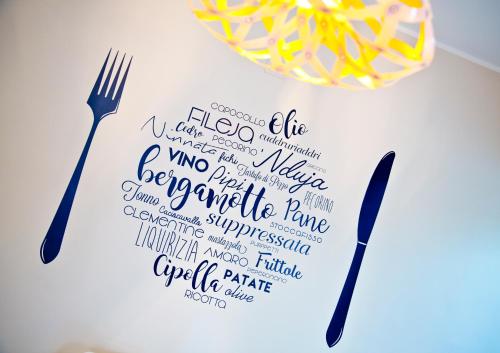 CAPOCOLLO
FILEJA Olio
Cedro cuddruriaddri
Nunnata PECORINO 'Nduja
fichi Tartufo di Pizzo
VINO Pipi PECORINO
bergamotto Pane
Tonno STOCCAFISSO
Caciocavallo suppressata
CLEMENTINE PURPETTI
LIQUIRIZIA mostazzola Frittole
AMARO PEPERONCINO
Cipolla PATATE
RICOTTA olive